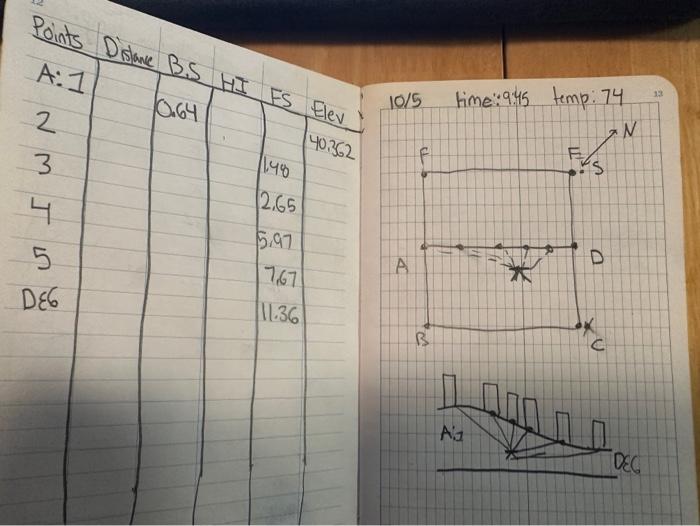 12
Points Distane B.S HI FS Elev
A:1 0.64 40.362
2 1.48
3 2.65
4 5.97
5 7.67
DEG 11.36
10/5 time: 9:45 temp: 74 13
N
F E S
A D
B C
A:1
DEG